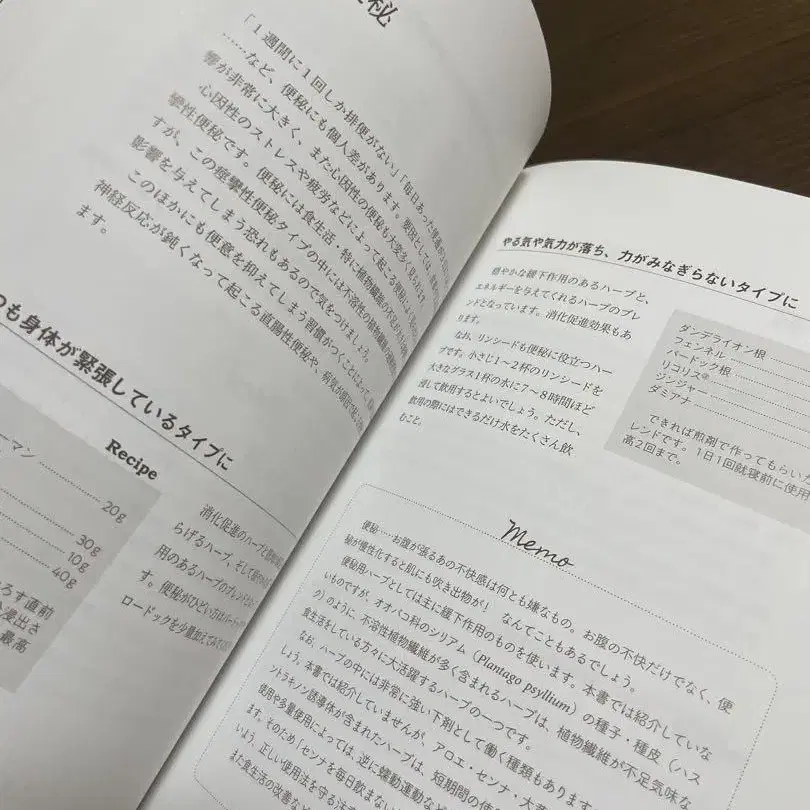 秘
「1週間に1回しか排便がない」「毎日あった便通が
……など、便秘にも個人差があります。要因としては、食事
響が非常に大きく、また心因性の便秘も大変多く見られ
心因性のストレスや疲労などによって起こる便秘は
攣性便秘です。便秘には食生活・特に植物繊維の不足が
すが、この痙攣性便秘タイプの中には不溶性の植物繊維が
影響を与えてしまう恐れもあるので気をつけましょう。
このほかにも便意を抑えてしまう習慣がつくことによって、
神経反応が鈍くなって起こる直腸性便秘や、病気が原因で
ます。
つも身体が緊張しているタイプに
Recipe
ーマン
20g
30g
10g
40g
ろす直前
浸出さ
最高
消化促進のハーブと
らげるハーブ、そして
用のあるハーブのブレンド
す。便秘がひどい方は
ロードックを少量加えて
やる気や気力が落ち、力がみなぎらないタイプに
穏やかな緩下作用のあるハーブと、
エネルギーを与えてくれるハーブのブレ
ンドとなっています。消化促進効果もあ
ります。
なお、リンシードも便秘に役立つハー
ブです。小さじ1〜2杯のリンシードを
大きなグラス1杯の水に7〜8時間ほど
浸して飲用するとよいでしょう。ただし、
飲用の際にはできるだけ水をたくさん飲
むこと。
ダンデライオン根
フェンネル
バードック根
リコリス
ジンジャー
ダミアナ
できれば煎剤で作ってもらいた
レンドです。1日1回就寝前に使用
高2回まで。
Memo
便秘……お腹が張るあの不快感は何とも嫌なもの。お腹の不快だけでなく、便
秘が慢性化すると肌にも吹き出物が! なんてこともあるでしょう。
便秘用ハーブとしては主に緩下作用のものを使います。本書では紹介していな
いものですが、オオバコ科のシリアム (Plantago psyllium) の種子・種皮(ハス
ク)のように、不溶性植物繊維が多く含まれるハーブは、植物繊維が不足気味な
食生活をしている方々に大活躍するハーブの一つです。
なお、ハーブの中には非常に強い下剤として働く種類もあります。
しょう。本書では紹介していませんが、アロエ・センナ・大
ントラキノン誘導体が含まれたハーブは、短期間の使
使用や多量使用によっては、逆に蠕動運動など
ます。そのため「センナを毎日飲まない
いよう、正しい使用法を守る注意
また食生活の改善